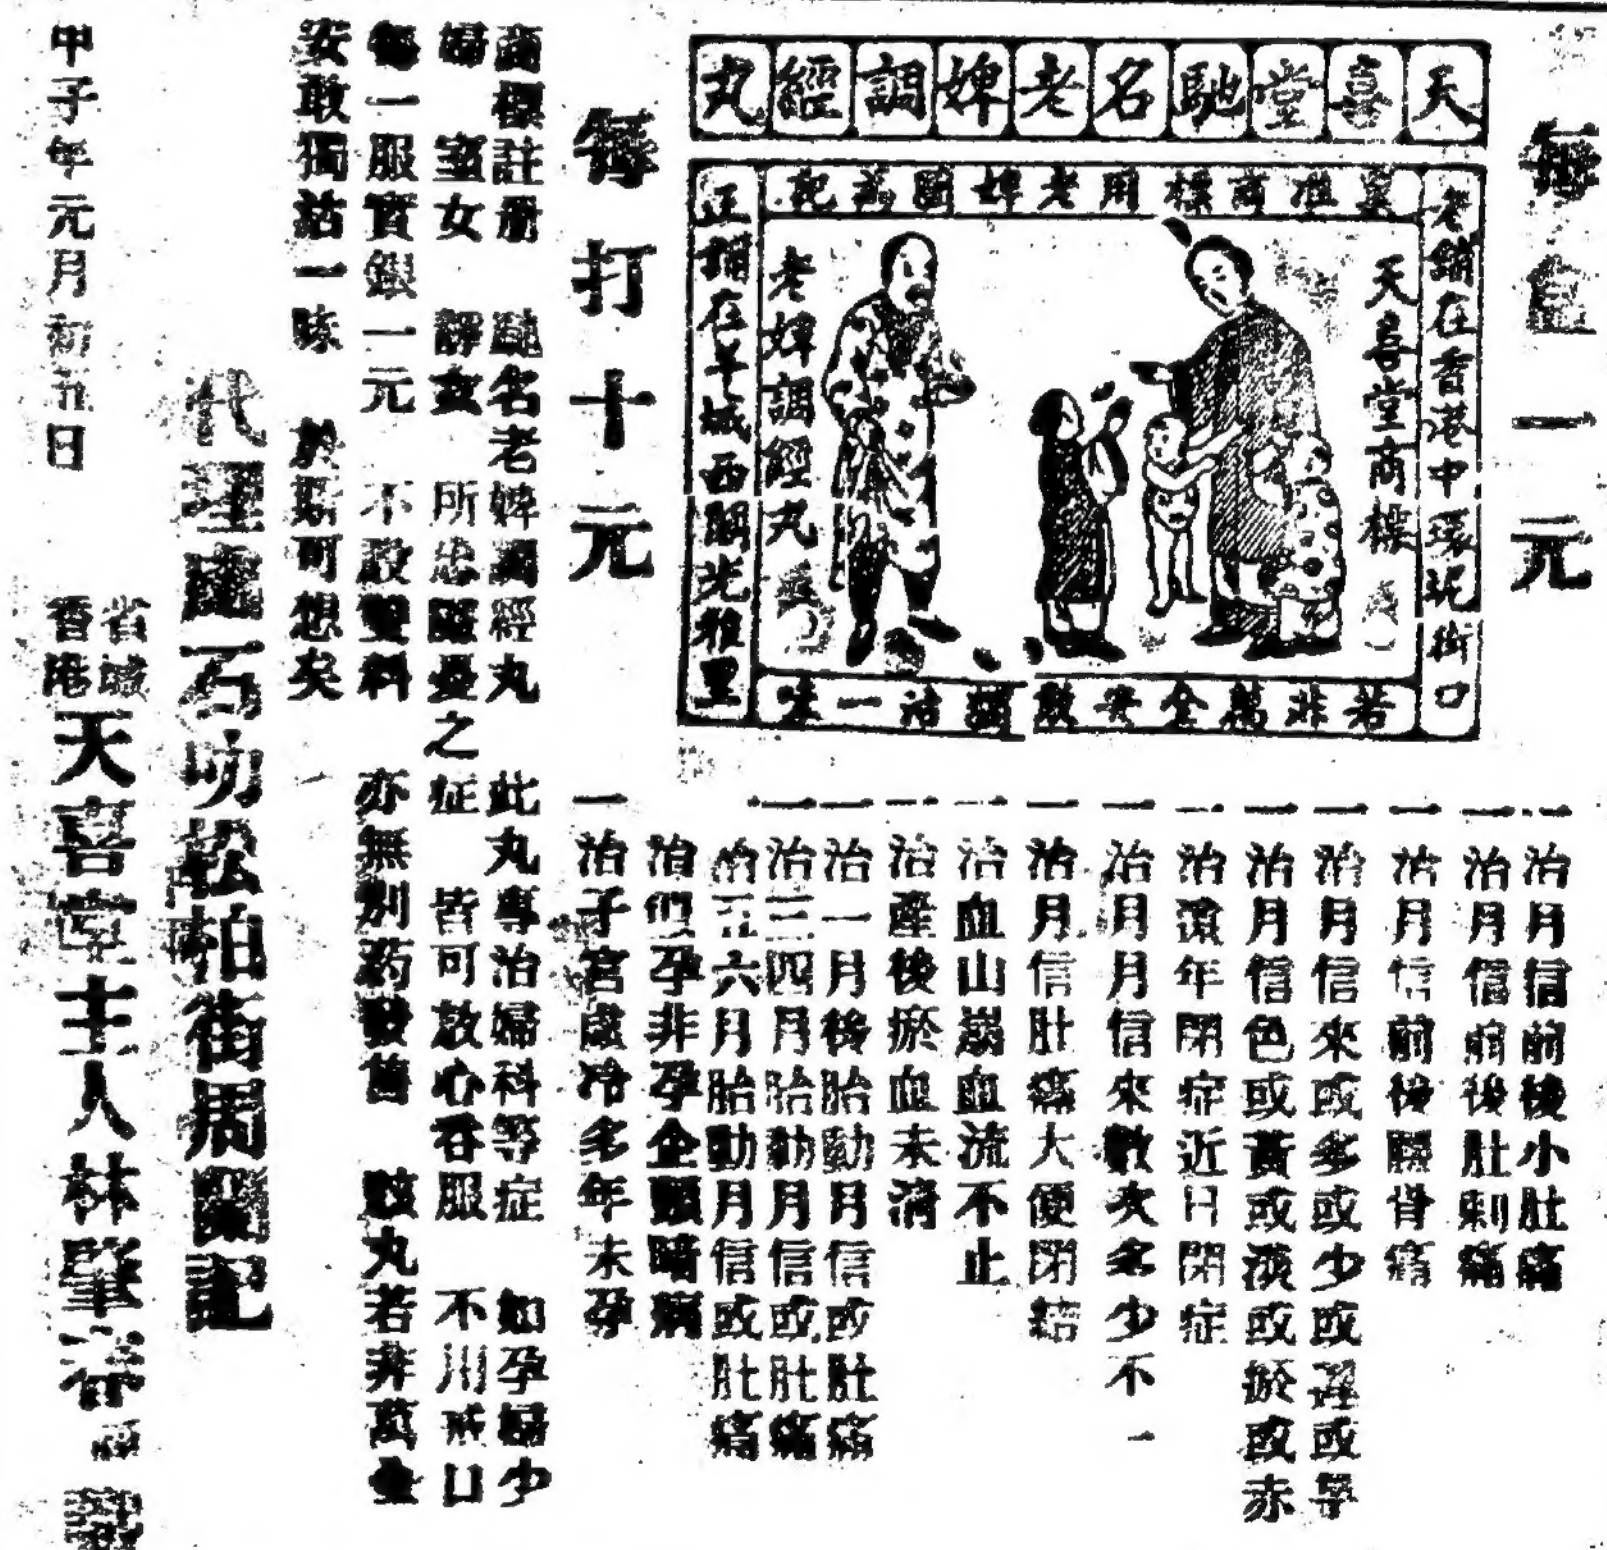 每盒一元
天喜堂馳名老婢調經丸
老舖在香港中環坭街口
准商標用老婢圖為記
天喜堂商標
老婢調經丸
正舖在羊城西關光雅里
若非萬全安敢獨沽一味
每打十元
一治月信前後小肚痛
一治月信前後肚刺痛
一治月信前後腰骨痛
一治月信來或多或少或遲或早
一治月信色或黃或淡或瘀或赤
一治遠年閉症近日閉症
一治月月信來數次多少不一
一治月信肚痛大便閉結
一治血山崩血流不止
一治產後瘀血未清
一治一月後胎動月信或肚痛
一治三四月胎動月信或肚痛
治五六月胎動月信或肚痛
治似孕非孕企頭暗病
一治子宮虛冷多年未孕
商標註册 馳名老婢調經丸 此丸專治婦科等症 如孕婦少
婦 室女 靜女 所患隱憂之症 皆可放心吞服 不用戒口
每一服實銀一元 不設雙料 亦無別葯發售 該丸若非萬全
安敢獨沽一味 於斯可想矣
代理處石叻松柏街周蘭記
甲子年元月初五日
省城
香港
天喜堂主人林肇